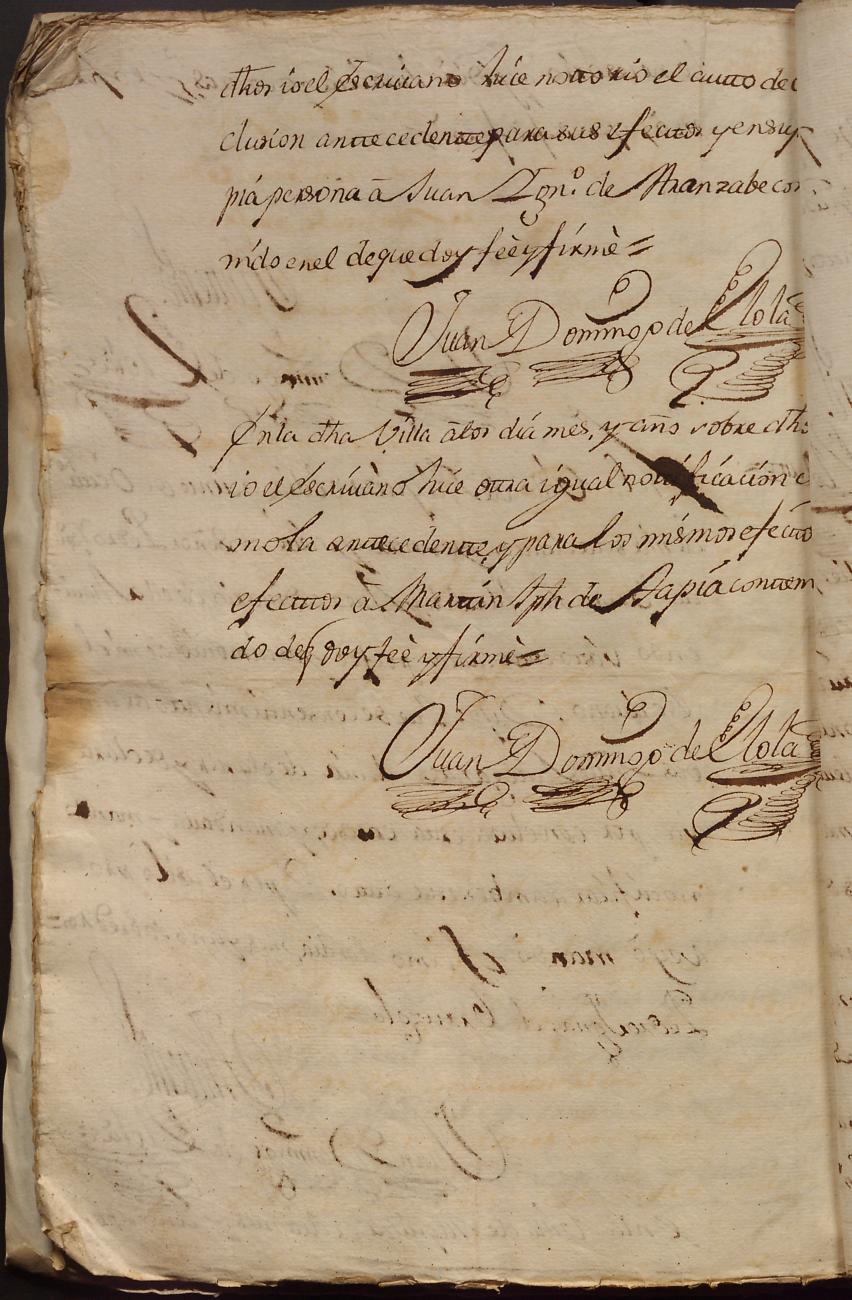 dhos io el Escriuano hice nottorio el autto de
clusion anttecedentte para sus efecttos y en su
pia persona â Juan Ygn.º de Aranzabe con
nido en el de que doy feè y firmè =
Juan Domingo de Elola
En la dha Villa â los dia mes, y año sobre dhos
io el Escriuano hice ottra igual nottificacion c
mo la anttecedentte, y para los mismos efectto
efecttos â Martin Jph de Tapia conttem
do de q doy feè y firmè =
Juan Domingo de Elola